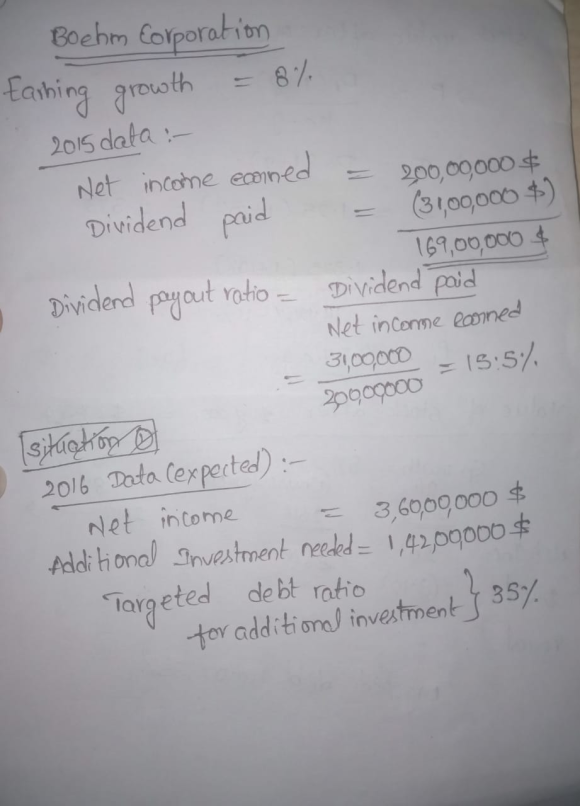 Boehm Corporation
Earning growth = 8%
2015 data :-
Net income earned = 200,00,000 $
Dividend paid = (31,00,000 $)
169,00,000 $
Dividend payout ratio = Dividend paid
Net income earned
= 31,00,000 = 15.5%
200,00,000
Situation
2016 Data (expected) :-
Net income = 3,60,00,000 $
Additional Investment needed = 1,42,00,000 $
Targeted debt ratio
for additional investment } 35%